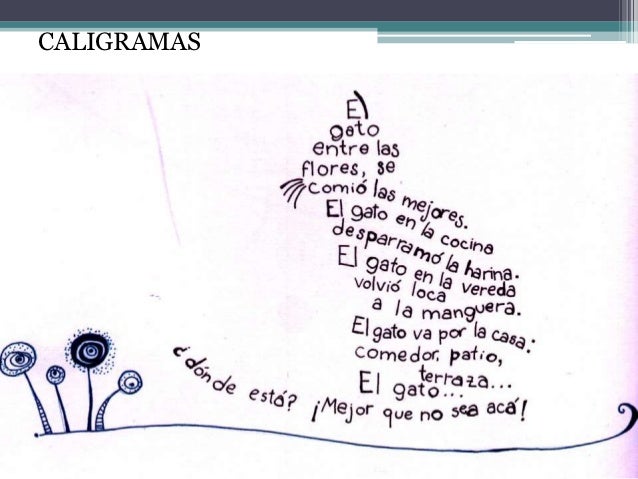 CALIGRAMAS
El
gato
entre las
flores, se
comió las mejores.
El gato en la cocina
desparramó la harina.
El gato en la vereda
volvió loca
a la manguera.
El gato va por la casa:
comedor, patio,
terraza...
El gato...
¿dónde está? ¡Mejor que no sea acá!